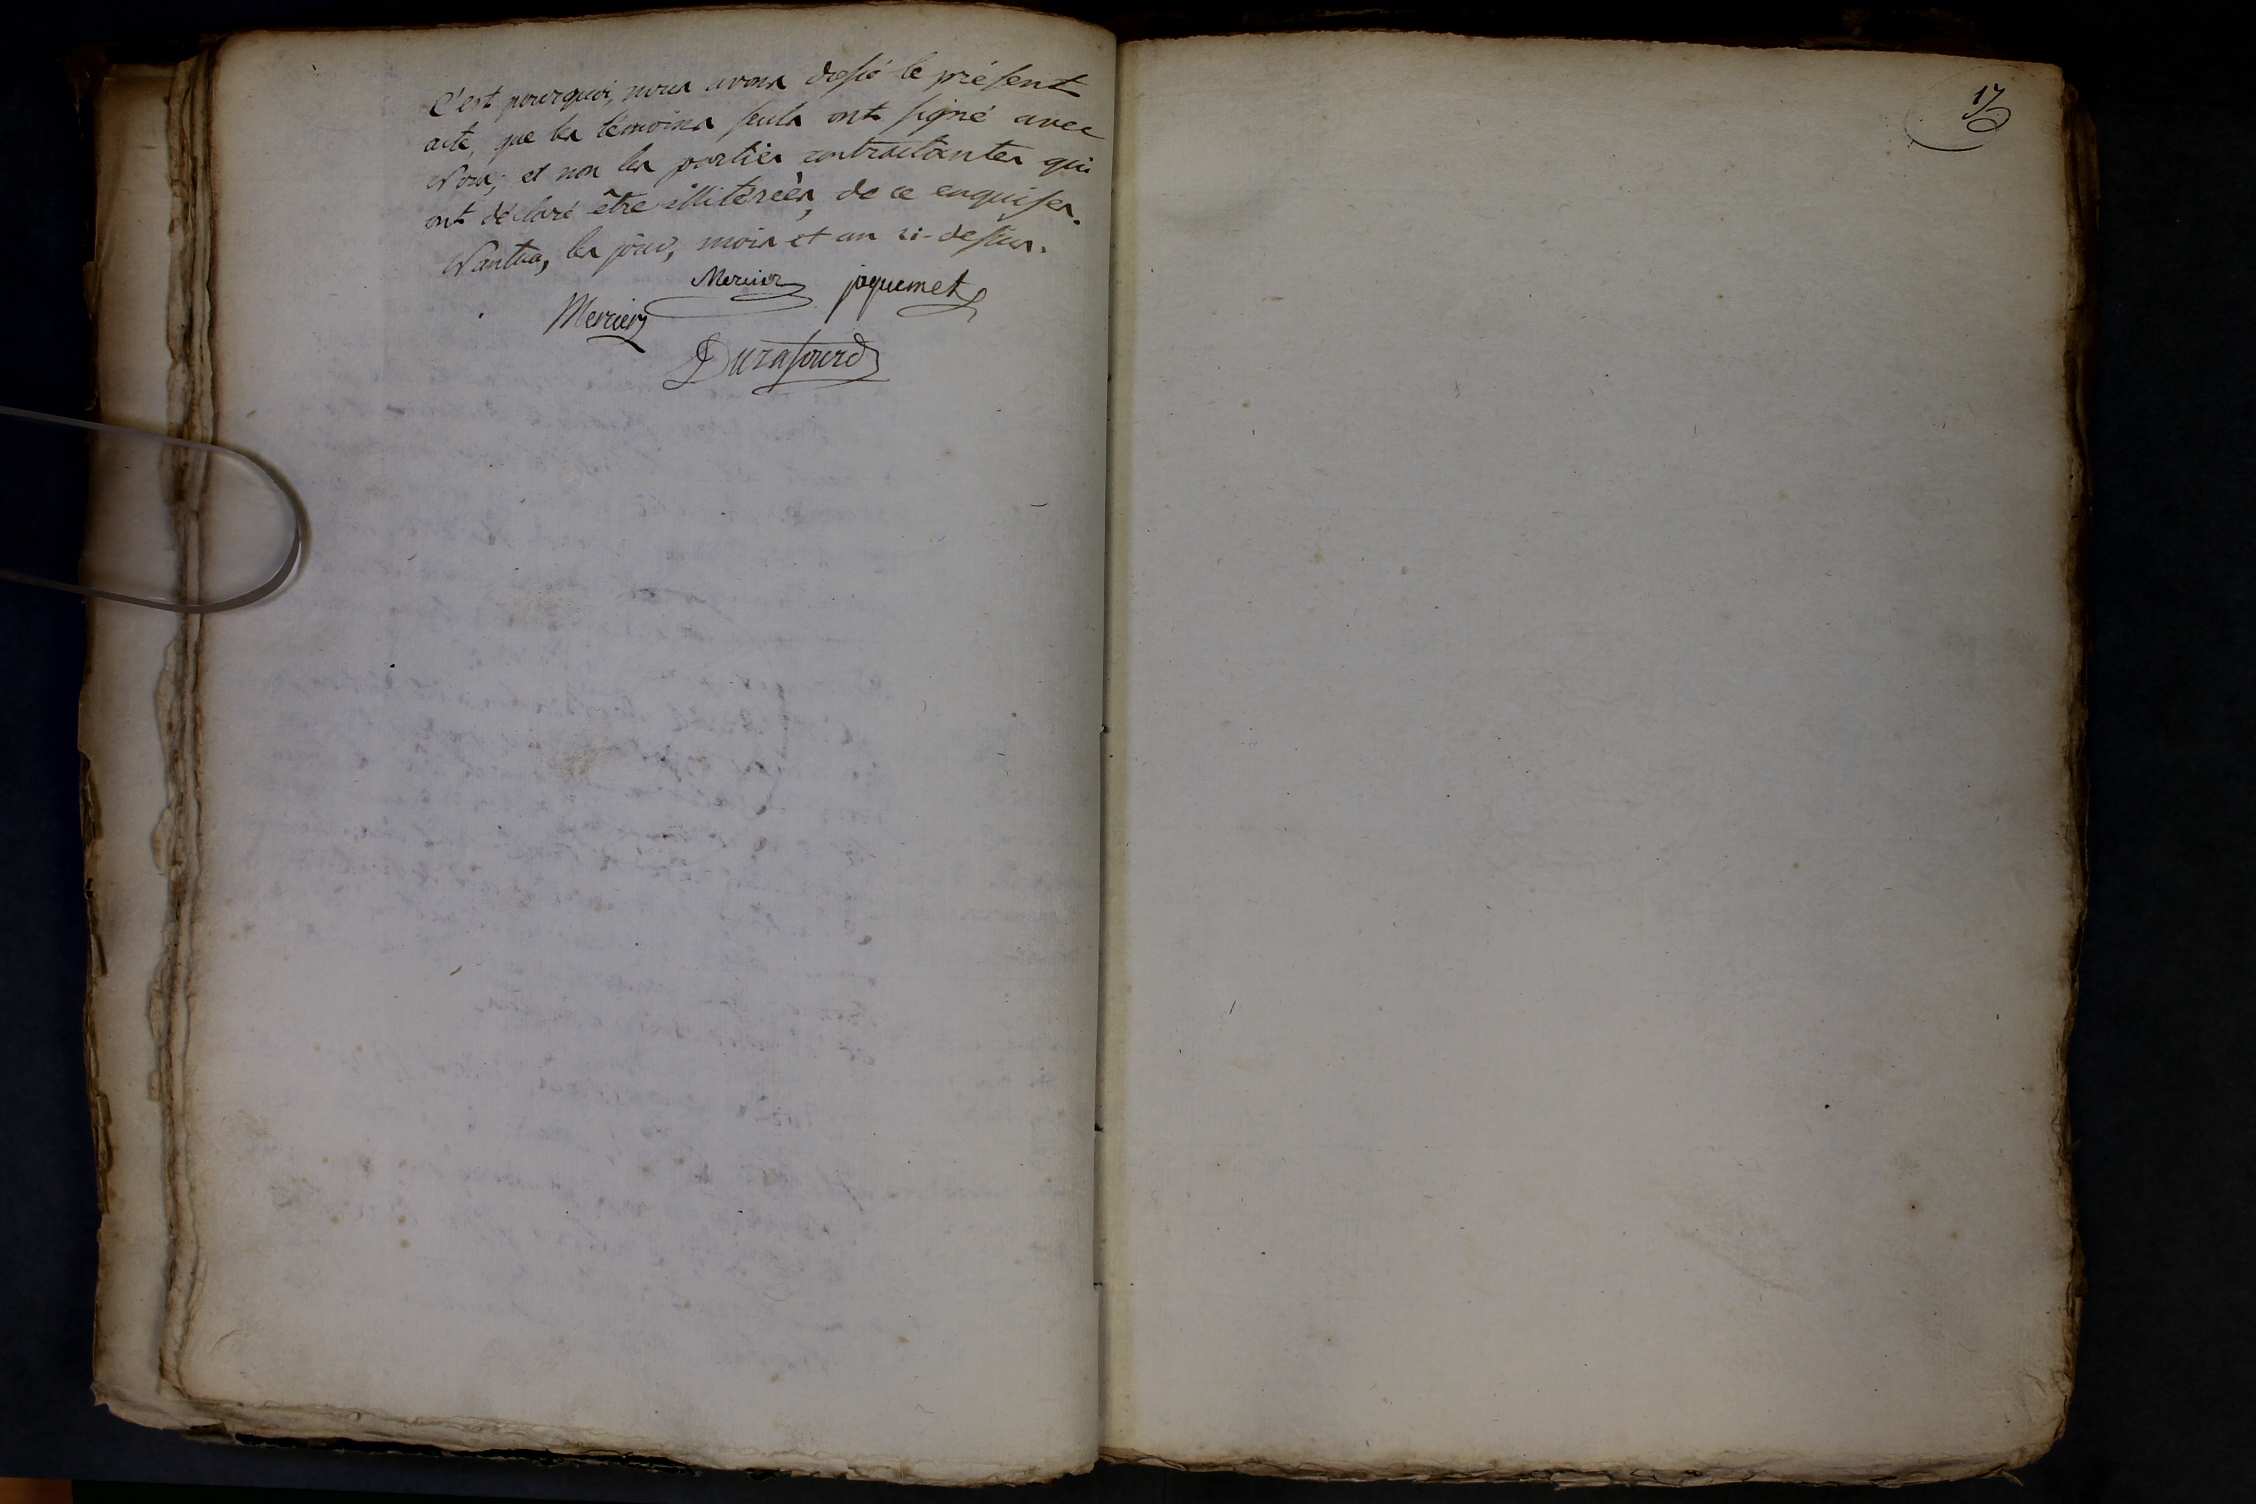 C'est pourquoi, nous avons dressé le présent
acte, que les témoins seuls ont signé avec
Nous, et non les parties contractantes qui
ont déclaré être illiterées, de ce enquises.
Nantua, les jour, mois et an ci-dessus.
Mercier joquemet
Mercier
Durafourd
17